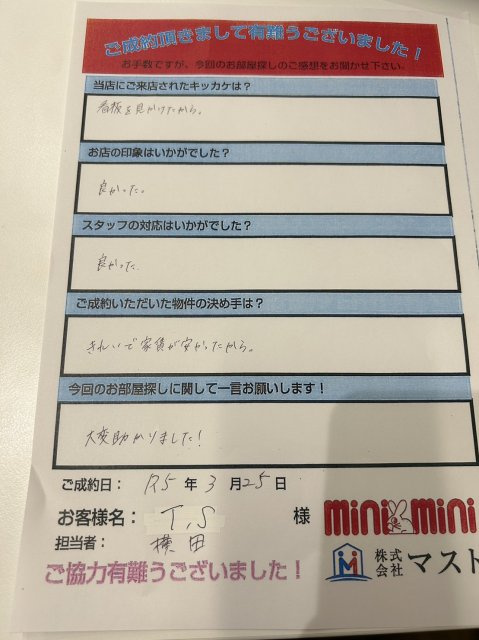 ご成約頂きまして有難うございました！
お手数ですが、今回のお部屋探しのご感想をお聞かせ下さい。
当店にご来店されたキッカケは？
看板を見かけたから。
お店の印象はいかがでした？
良かった。
スタッフの対応はいかがでした？
良かった.
ご成約いただいた物件の決め手は？
きれいで家賃が安かったから。
今回のお部屋探しに関して一言お願いします！
大変助かりました！
ご成約日： R5 年 3 月 25 日
お客様名： T.S 様
担当者： 横田
ご協力有難うございました！
mini mini
株式会社 マスト